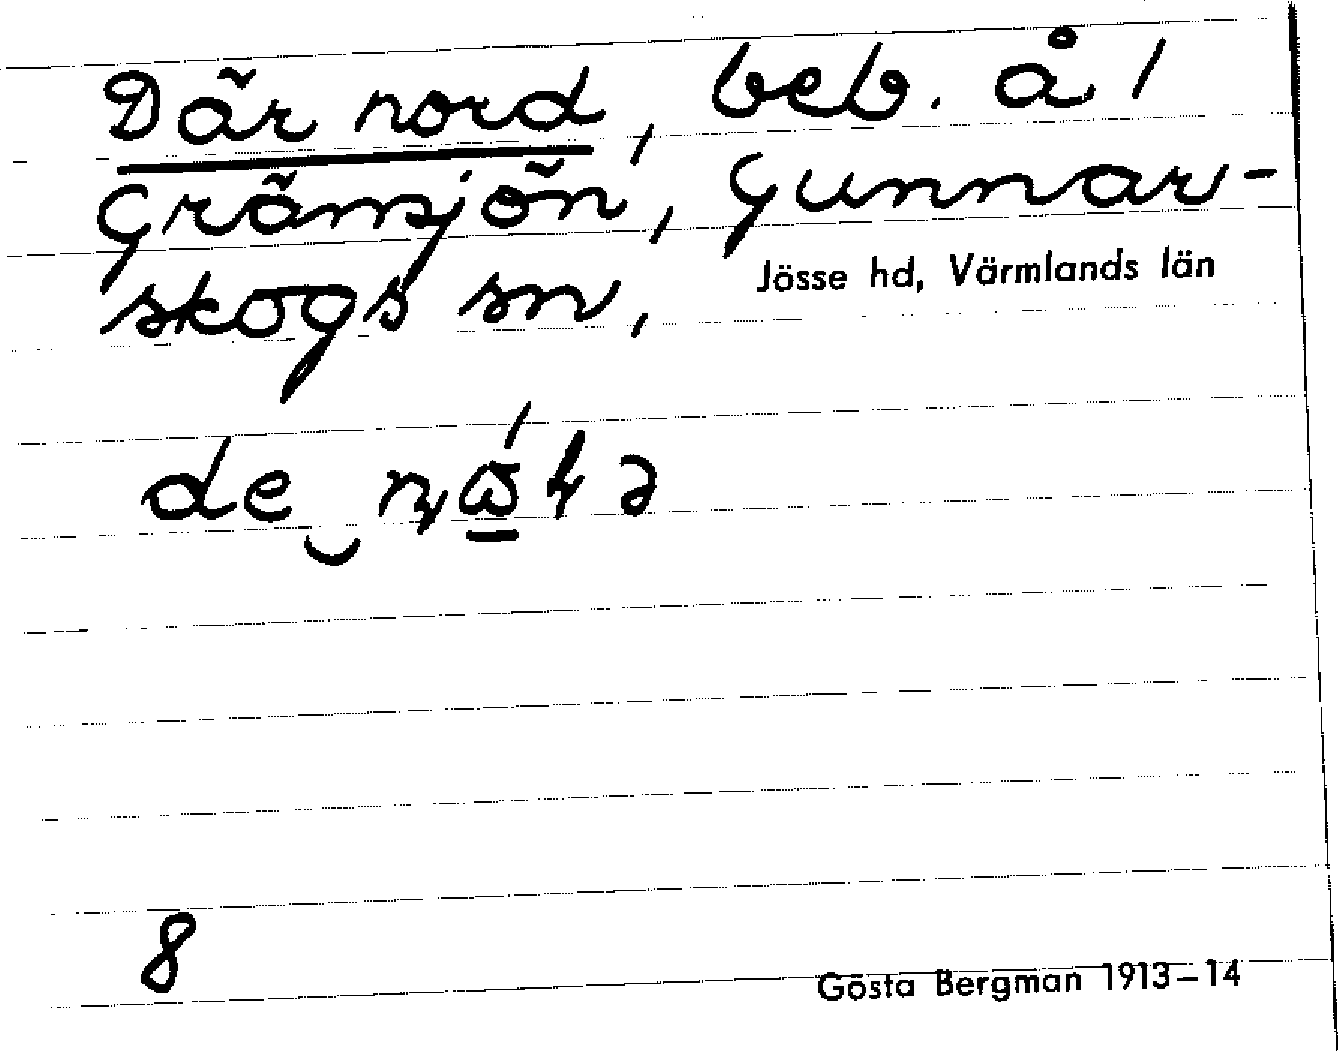 Där nord, beb. å 1
Grämjön, Gunnar-
skogs sn,
Jösse hd, Värmlands län
8
Gösta Bergman 1913–14